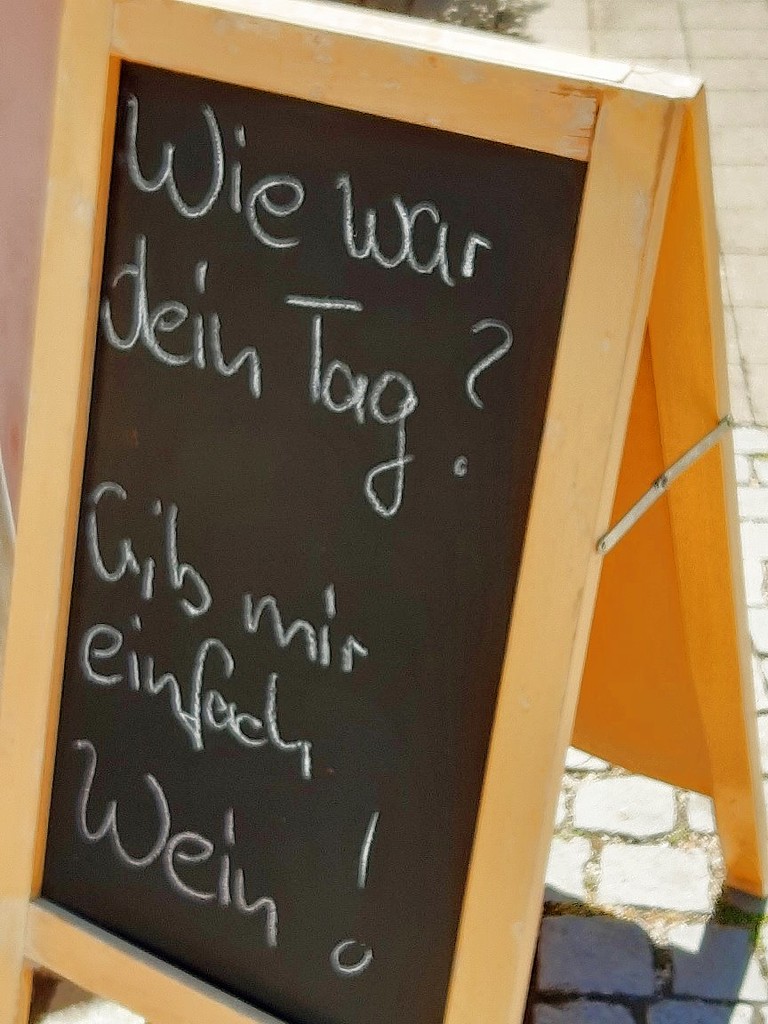 Wie war
dein Tag?
Gib mir
einfach
Wein!